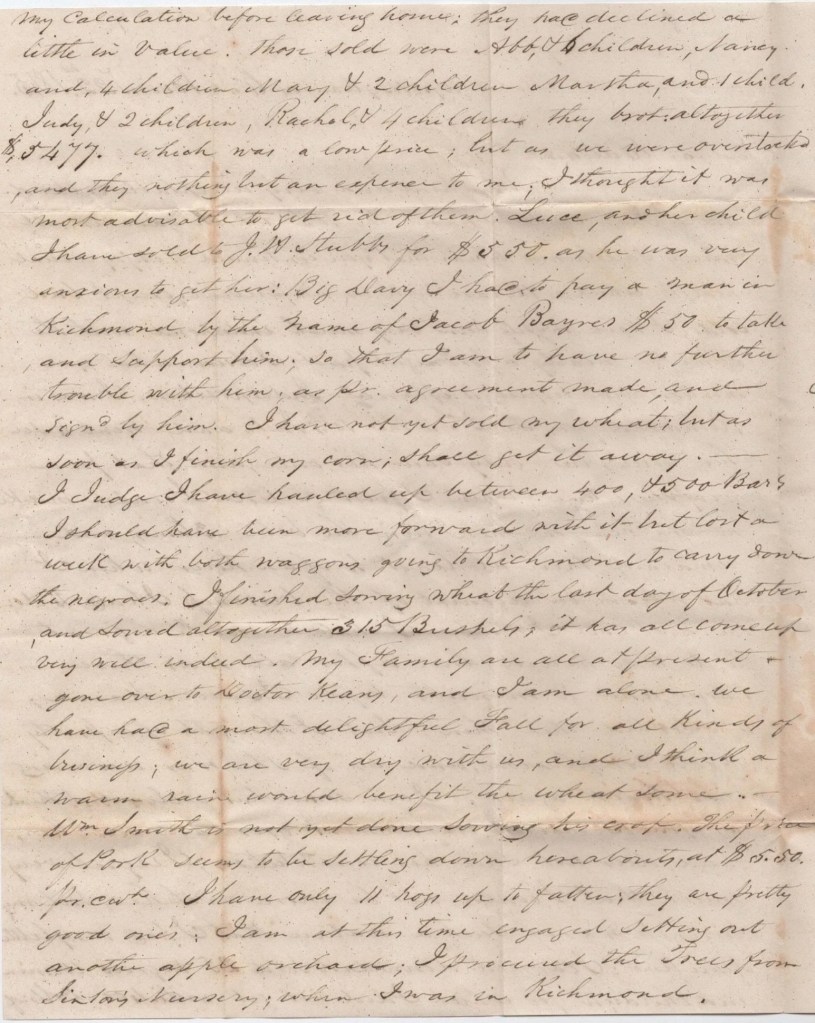 my Calculation before leaving home; they had declined a
little in value. those sold were Abb, & 6 children, Nancy
and, 4 children Mary & 2 children Martha, and 1 child.
Judy, & 2 children, Rachel, & 4 children they brot: altogether
$,5477. which was a low price; but as we were overstock'd
, and they nothing but an expence to me; I thought it was
most advisable to get rid of them. Luce, and her child
I have sold to J. W. Stubbs for $550. as he was very
anxious to get her: Big Davy I had to pay a man in
Richmond by the name of Jacob $50 to take
, and support him; so that I am to have no further
trouble with him; as pr. agreement made, and
signd by him. I have not yet sold my wheat; but as
soon as I finish my corn; shall get it away. —
I Judge I have hauled up between 400, & 500 Bars
I should have been more forward with it but lost a
week with both waggons going to Richmond to carry down
the negroes. I finished sowing wheat the last day of October
, and sowed altogether 315 Bushels; it has all come up
very well indeed. My Family are all at present
gone over to Doctor Keans, and I am alone. we
have had a most delightful Fall for all Kinds of
business; we are very dry with us, and I think a
warm rain would benefit the wheat some. —
Wm Smith is not yet done sowing his crop. The price
of Pork seems to be settling down hereabouts, at $5.50.
pr. cwt. I have only 11 hogs up to fatten; they are pretty
good ones; I am at this time engaged setting out
anothe apple orchard; I procured the Trees from
Sinton's Nursery; when I was in Richmond.